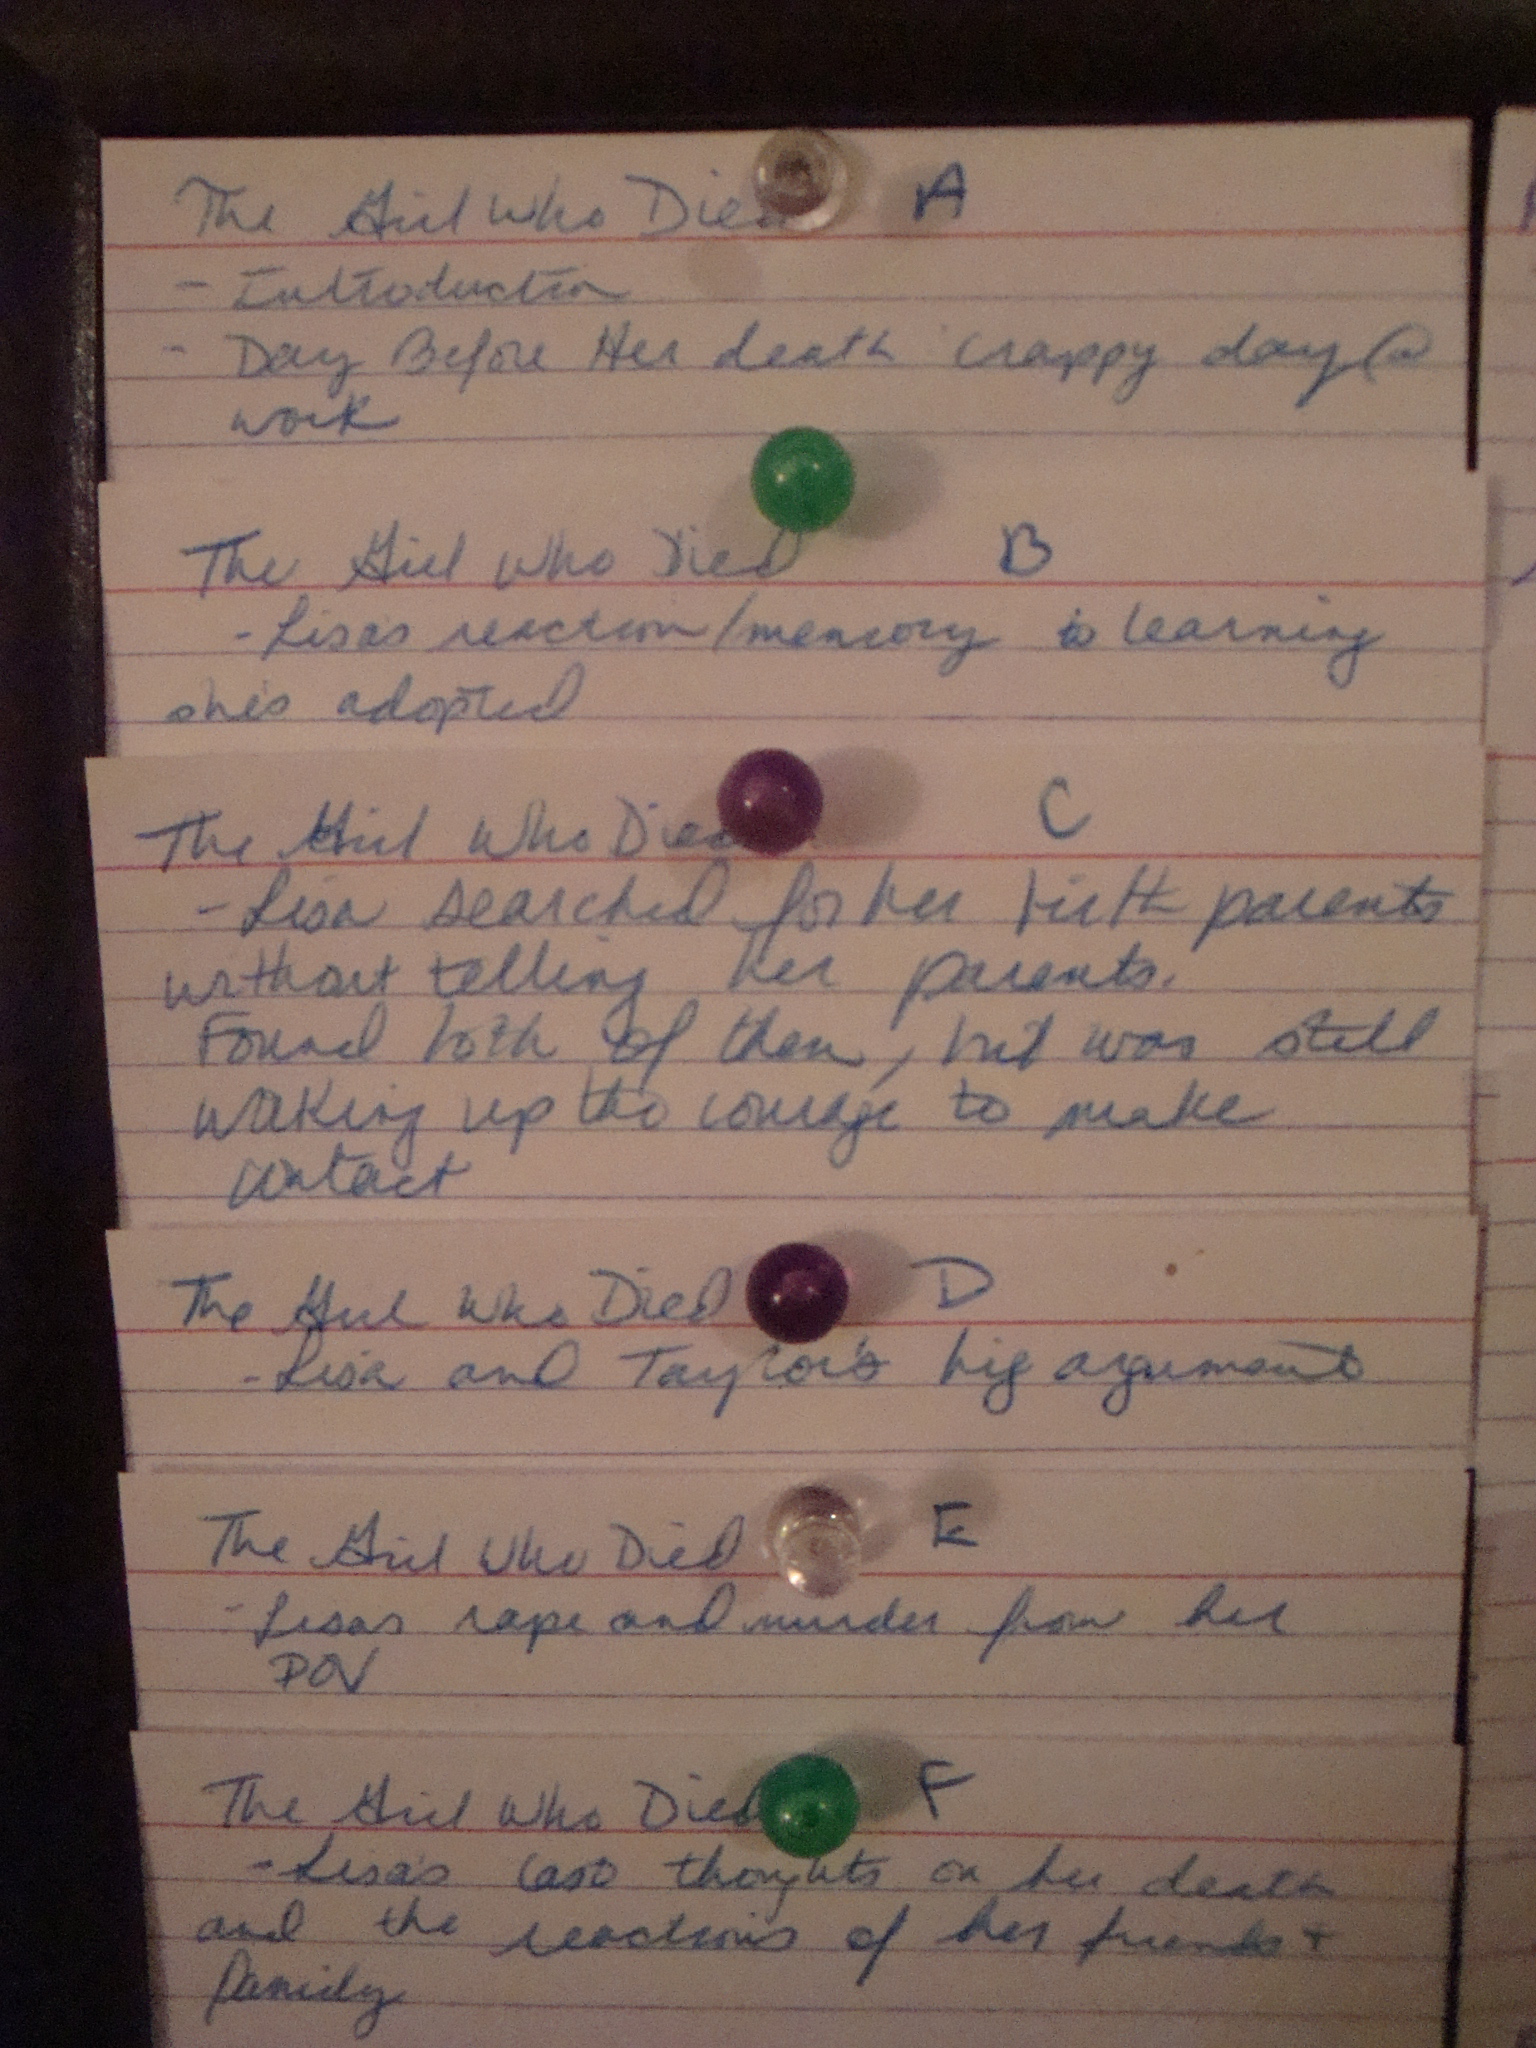 The Girl Who Died A
- Introduction
- Day Before Her death crappy day @
work
The Girl Who Died B
- Lisa's reaction/memory to learning
she's adopted
The Girl Who Died C
- Lisa searched for her birth parents
without telling her parents.
Found both of them, but was still
working up the courage to make
contact
The Girl Who Died D
- Lisa and Taylor's big argument
The Girl Who Died E
- Lisa's rape and murder from her
POV
The Girl Who Died F
- Lisa's last thoughts on her death
and the reactions of her friends +
family